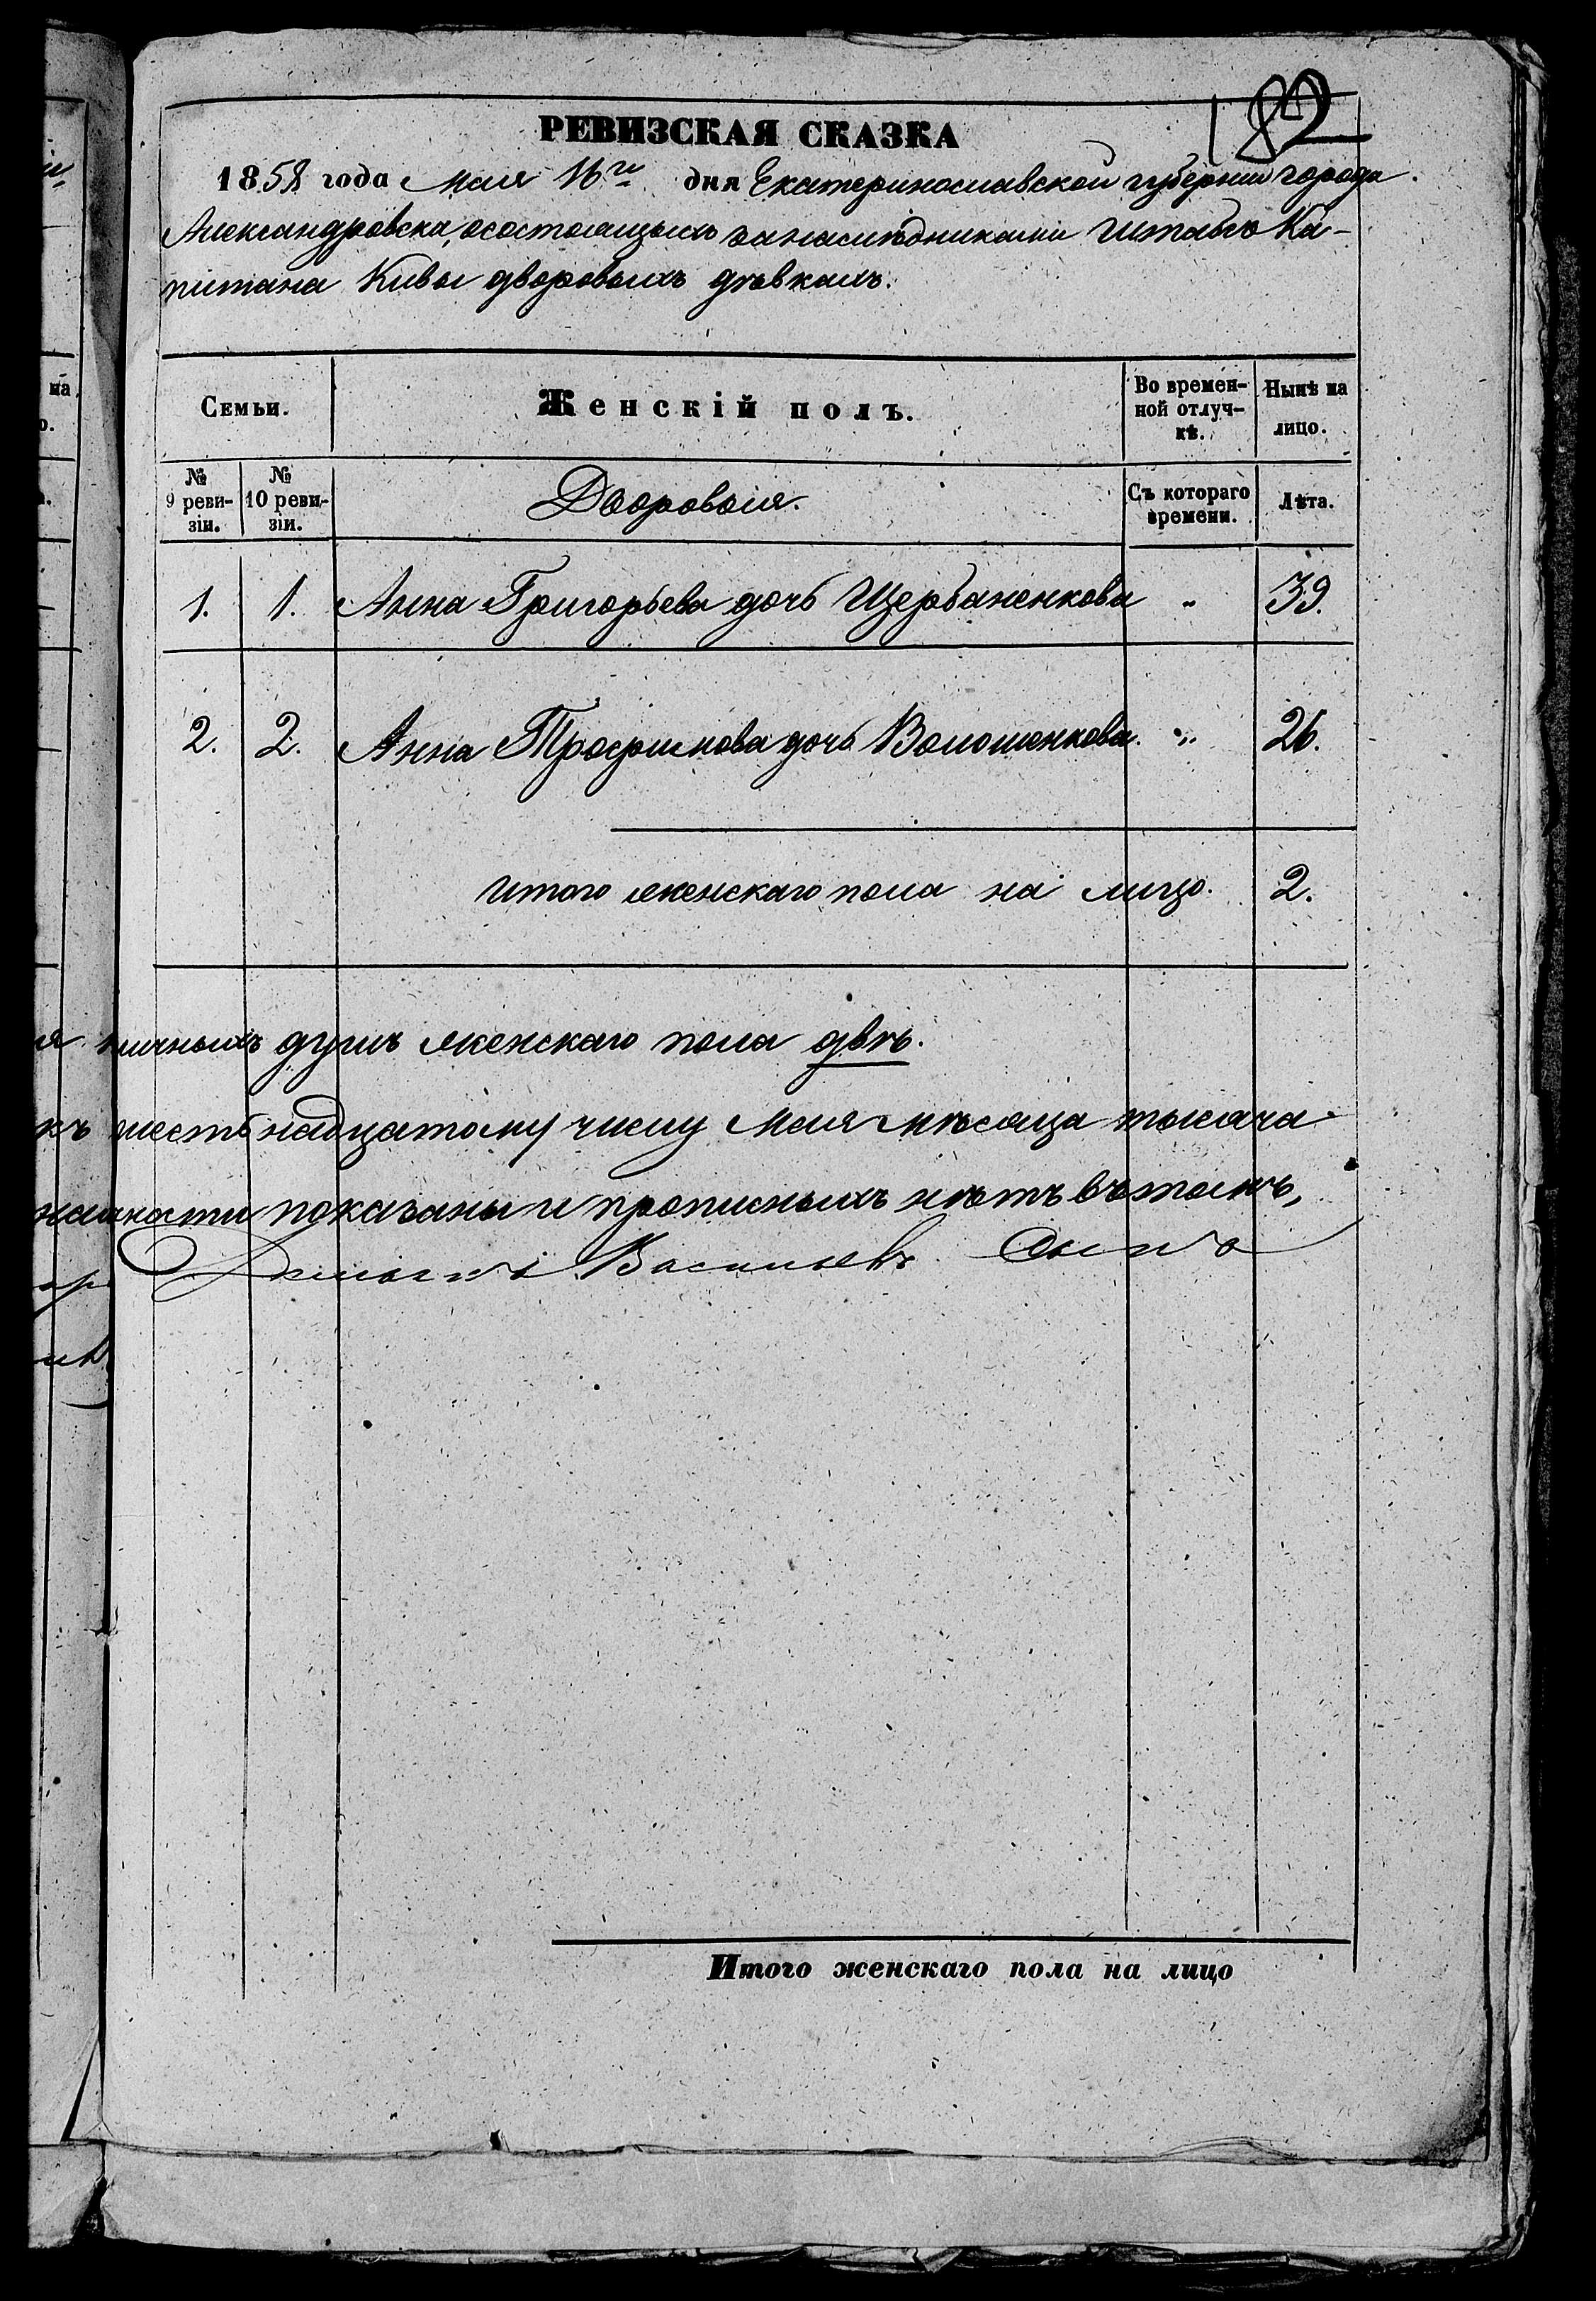 182
РЕВИЗСКАЯ СКАЗКА
1858 года Мая 16го дня Екатеринославской губернии города
Александровска, о состоящихъ за наслѣдниками Штабсъ Ка-
питана Кивы дворовыхъ дѣвкахъ.
Семьи. Женскій полъ. Во времен-ной отлуч-кѣ. Нынѣ на лицо.
№ 9 реви-зіи. № 10 реви-зіи. Дворовыя. Съ котораго времени. Лѣта.
1. 1. Анна Григорьева дочь Щербаненкова „ 39.
2. 2. Анна Трофимова дочь Волошенкова. „ 26.
Итого женскаго пола на лицо. 2.
личныхъ душъ женскаго пола двѣ.
къ шестьнадцатому числу Мая мѣсяца тысяча
наличности показаны и прописныхъ нѣтъ въ томъ,
Васильевъ Сынъ
Итого женскаго пола на лицо